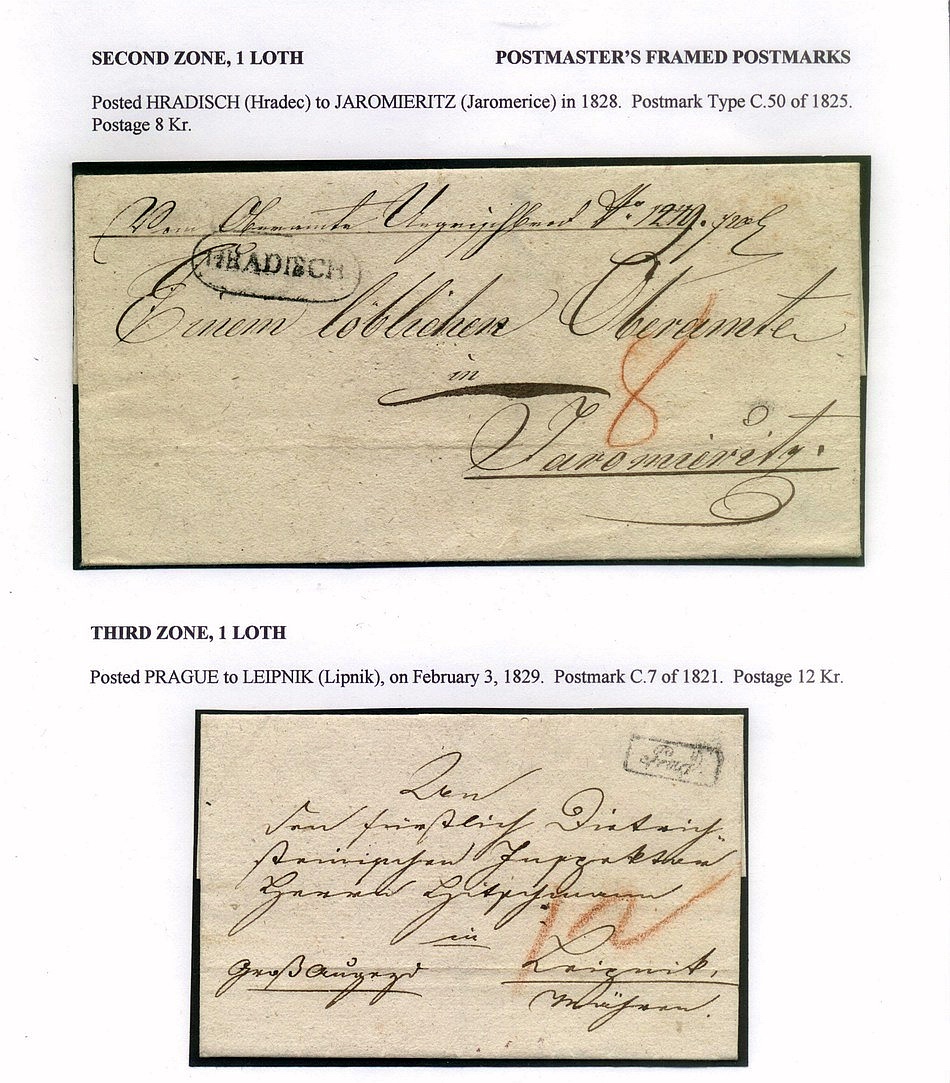 SECOND ZONE, 1 LOTH POSTMASTER'S FRAMED POSTMARKS
Posted HRADISCH (Hradec) to JAROMIERITZ (Jaromerice) in 1828. Postmark Type C.50 of 1825.
Postage 8 Kr.
Vom Oberamte Ungrischbrod No. 1479.
HRADISCH
Einem löblichen Oberamte
8
in
Jaromieritz.
THIRD ZONE, 1 LOTH
Posted PRAGUE to LEIPNIK (Lipnik), on February 3, 1829. Postmark C.7 of 1821. Postage 12 Kr.
Prag.
An
den fürstlich Dietrich-
steinischen Inspektor
Herrn Hitschmann
12
in
Groß Augezd Leipnik.
Mähren.